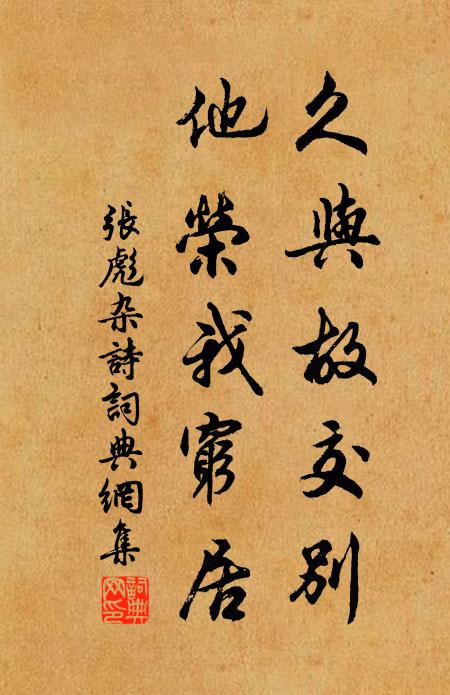 久與故交別
他榮我窮居
張彪杂詩詞典網集
詞典网印